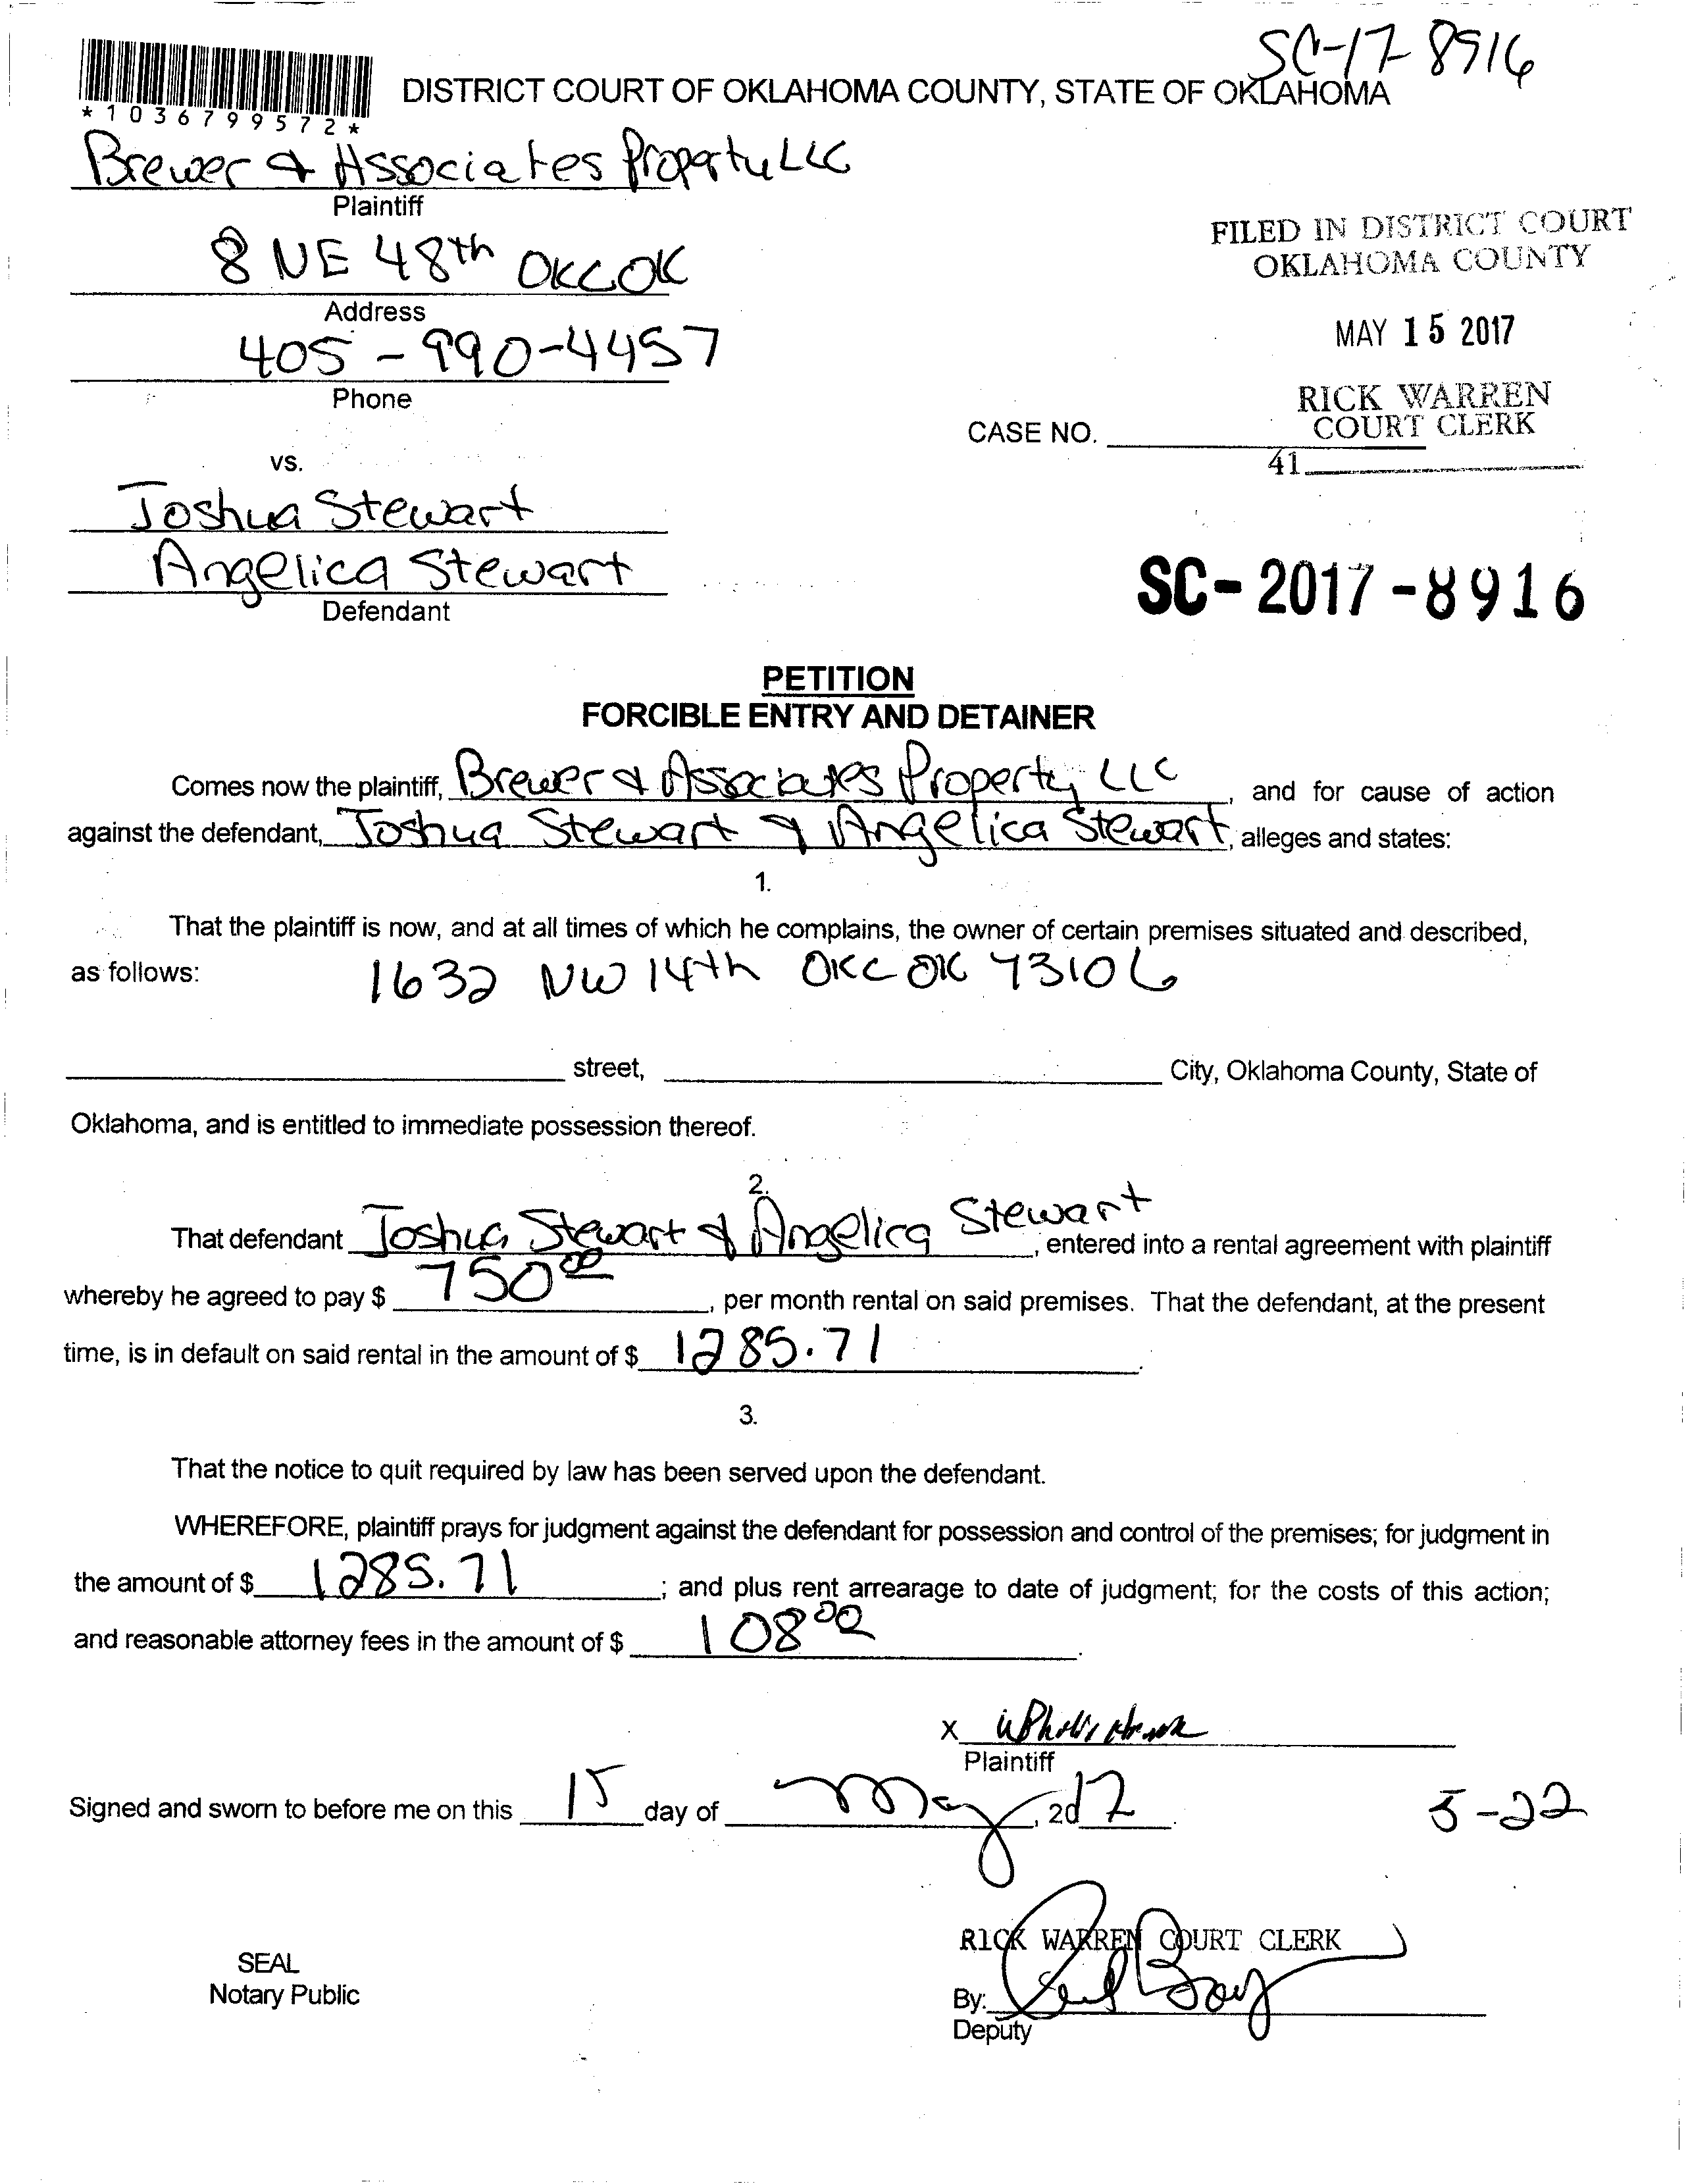 SC-17-8916
*1036799572*
DISTRICT COURT OF OKLAHOMA COUNTY, STATE OF OKLAHOMA
Brewer & Associates Property LLC
Plaintiff
8 NE 48th OKC OK
Address
405-990-4457
Phone
FILED IN DISTRICT COURT
OKLAHOMA COUNTY
MAY 15 2017
RICK WARREN
COURT CLERK
41
CASE NO.
vs.
Joshua Stewart
Angelica Stewart
Defendant
SC-2017-8916
PETITION
FORCIBLE ENTRY AND DETAINER
Comes now the plaintiff, Brewer & Associates Property LLC, and for cause of action
against the defendant, Joshua Stewart & Angelica Stewart, alleges and states:
1.
That the plaintiff is now, and at all times of which he complains, the owner of certain premises situated and described,
as follows: 1632 NW 14th OKC OK 73106
street, City, Oklahoma County, State of
Oklahoma, and is entitled to immediate possession thereof.
2.
That defendant Joshua Stewart & Angelica Stewart, entered into a rental agreement with plaintiff
whereby he agreed to pay $ 750 00, per month rental on said premises. That the defendant, at the present
time, is in default on said rental in the amount of $ 1285.71.
3.
That the notice to quit required by law has been served upon the defendant.
WHEREFORE, plaintiff prays for judgment against the defendant for possession and control of the premises; for judgment in
the amount of $ 1285.71; and plus rent arrearage to date of judgment; for the costs of this action;
and reasonable attorney fees in the amount of $ 108 00.
X
Plaintiff
Signed and sworn to before me on this 15 day of May, 2017.
5-22
RICK WARREN COURT CLERK
SEAL
Notary Public
By:
Deputy